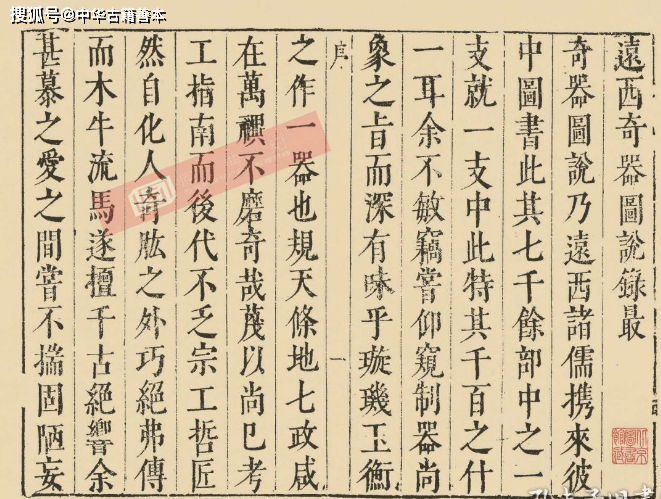 搜狐号@中华古籍善本
遠西奇器圖說錄最
奇器圖說乃遠西諸儒携來彼
中圖書此其七千餘部中之一
支就一支中此特其千百之什
一耳余不敏竊嘗仰窺制器尚
象之旨而深有味乎璇璣玉衡
序
一
之作一器也規天條地七政咸
在萬禩不磨奇哉蔑以尚已考
工指南而後代不乏宗工哲匠
然自化人奇肱之外巧絕弗傳
而木牛流馬遂擅千古絕響余
甚慕之愛之間嘗不揣固陋妄